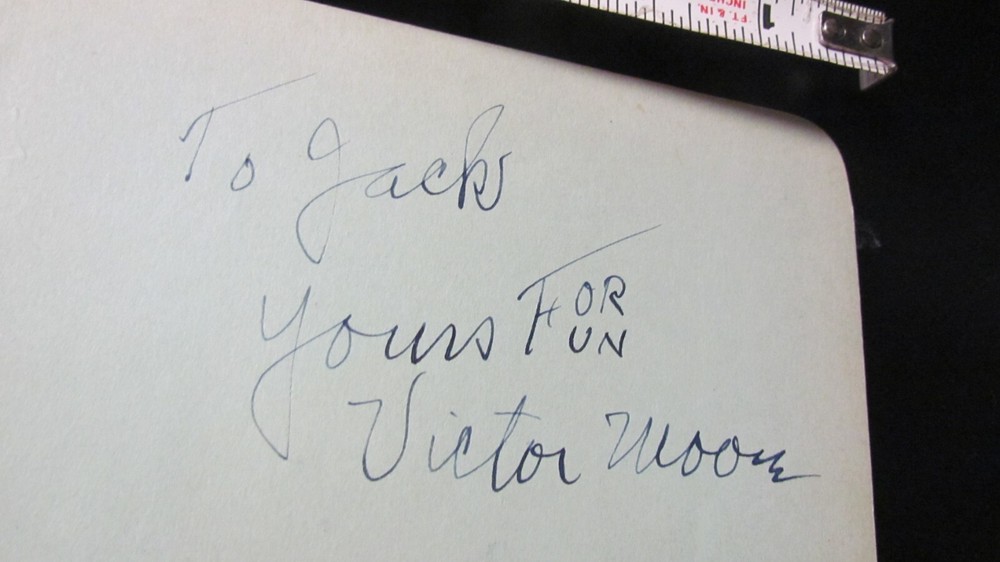 FT. & IN.
INCHES
1
To Jack
Yours FOR
UN
Victor Moore